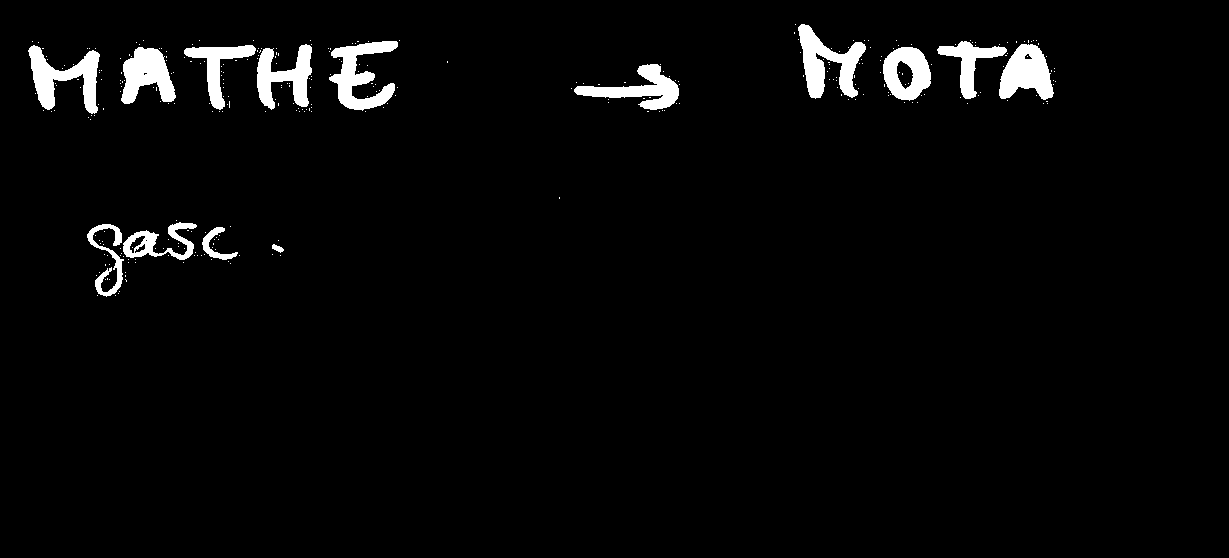 MATHE → MOTA
gasc.